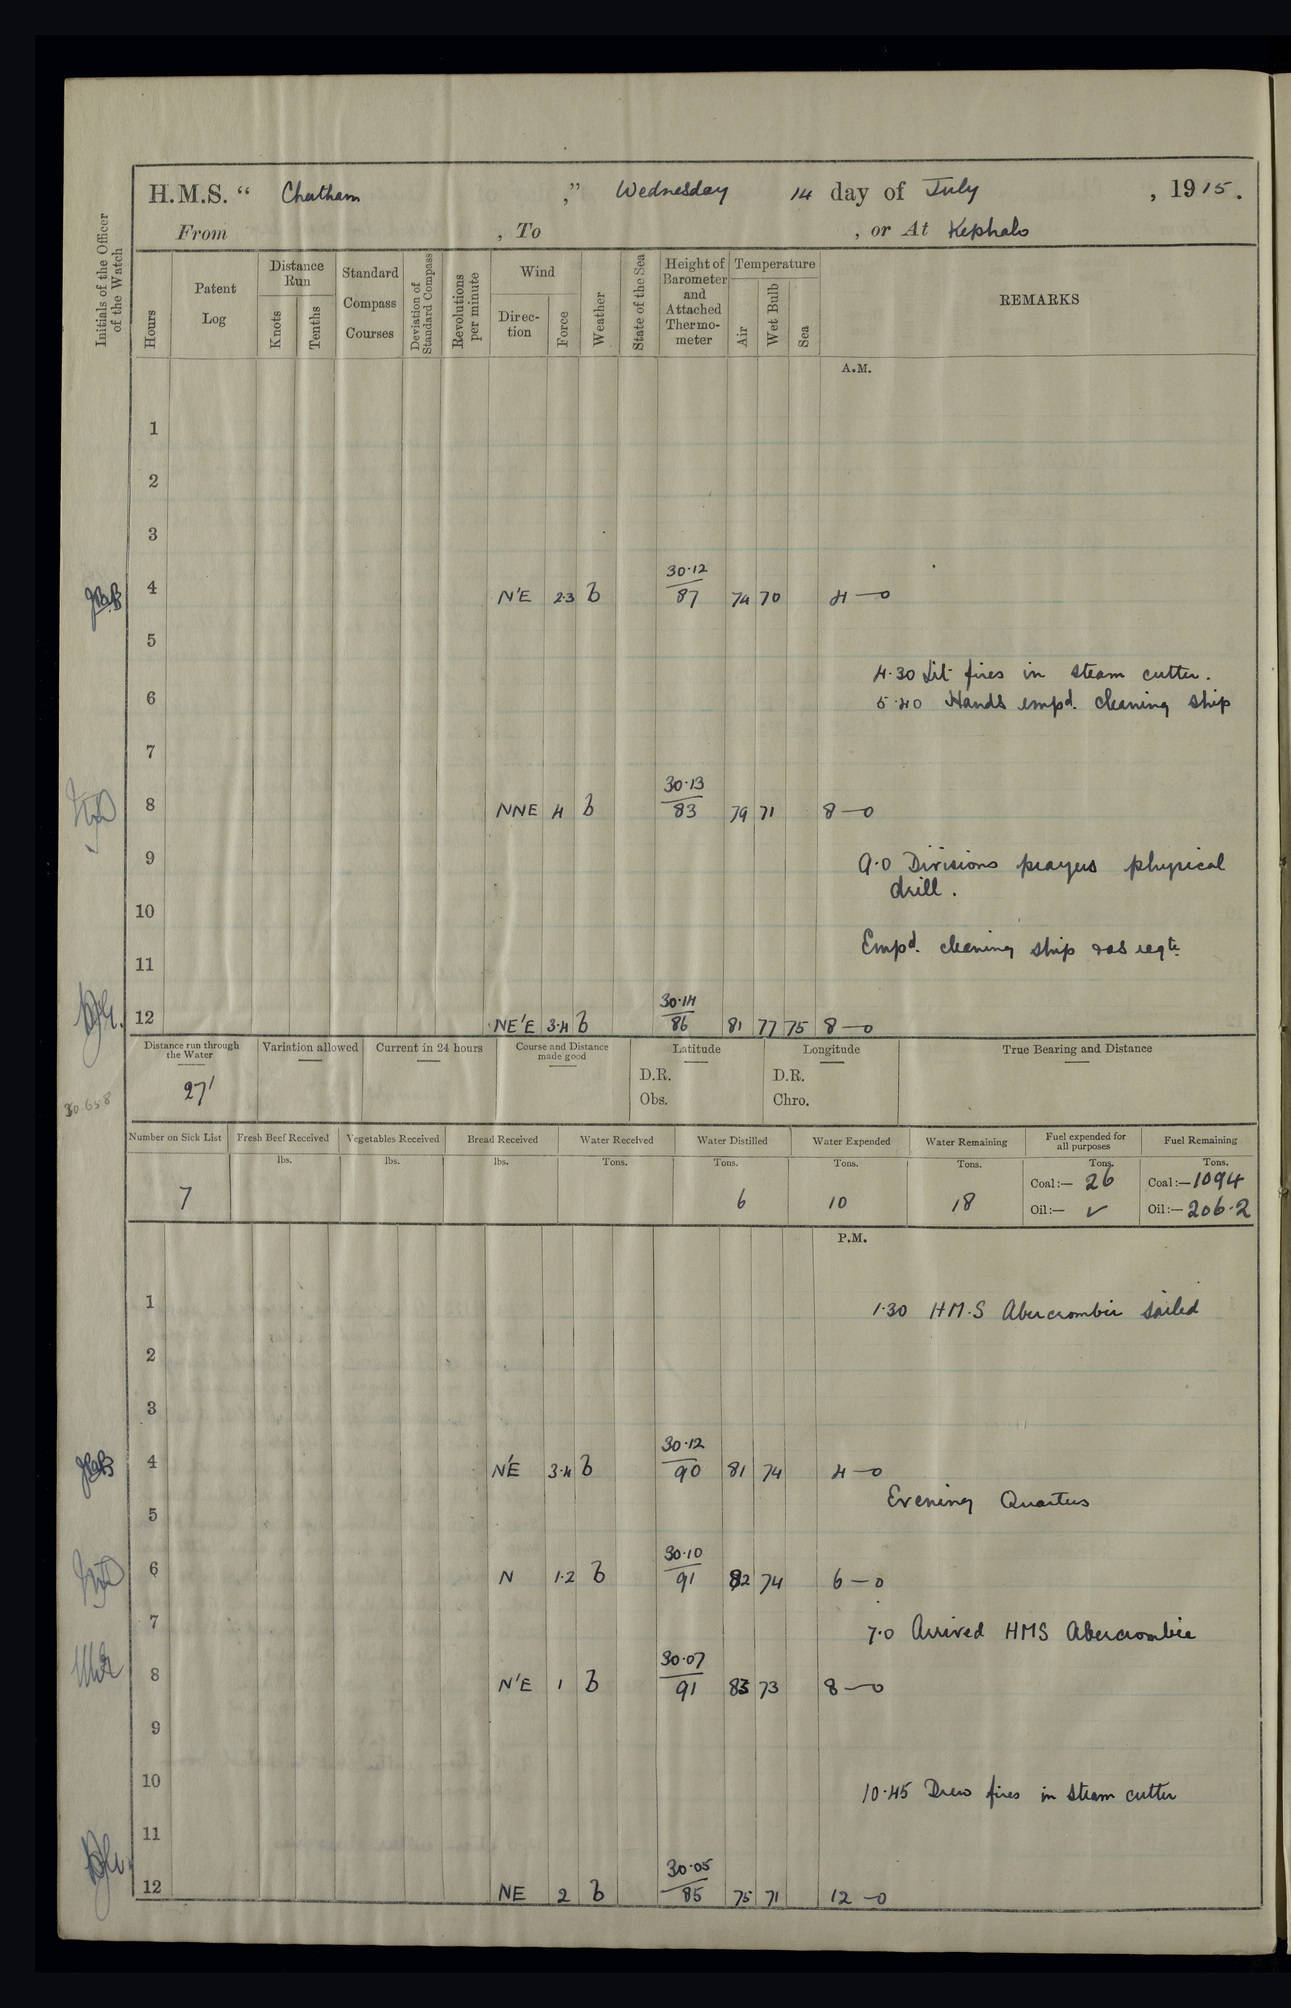 H.M.S. “ Chatham ,” Wednesday 14 day of July , 1915.
From , To , or At Kephalo
Initials of the Officer of the Watch
Hours
Patent Log
Distance Run
Knots
Tenths
Standard Compass Courses
Deviation of Standard Compass
Revolutions per minute
Wind
Direc-tion
Force
Weather
State of the Sea
Height of Barometer and Attached Thermo-meter
Temperature
Air
Wet Bulb
Sea
REMARKS
A.M.
1
2
3
30·12
4 N'E 2·3 b 87 74 70 4—0
5
4·30 Lit fires in steam cutter.
6 5·40 Hands empd. cleaning ship
7
30·13
8 NNE 4 b 83 79 71 8—0
9 9·0 Divisions prayers physical
drill.
10
Empd. cleaning ship & as reqte
11
30·14
12 NE'E 3·4 b 86 81 77 75 8—0
Distance run through the Water
Variation allowed
Current in 24 hours
Course and Distance made good
Latitude
Longitude
True Bearing and Distance
27'
D.R. D.R.
Obs. Chro.
30 658
Number on Sick List
Fresh Beef Received
Vegetables Received
Bread Received
Water Received
Water Distilled
Water Expended
Water Remaining
Fuel expended for all purposes
Fuel Remaining
lbs. lbs. lbs. Tons. Tons. Tons. Tons. Tons. Tons.
7 6 10 18
Coal:— 26 Coal:—1094
Oil:— ✓ Oil:—206·2
P.M.
1 1·30 H.M.S Abercrombie sailed
2
3
30·12
4 N'E 3·4 b 90 81 74 4—0
Evening Quarters
5
30·10
6 N 1·2 b 91 82 74 6—0
7 7·0 Arrived HMS Abercrombie
30·07
8 N'E 1 b 91 83 73 8—0
9
10 10·45 Drew fires in steam cutter
11
30·05
12 NE 2 b 85 75 71 12—0